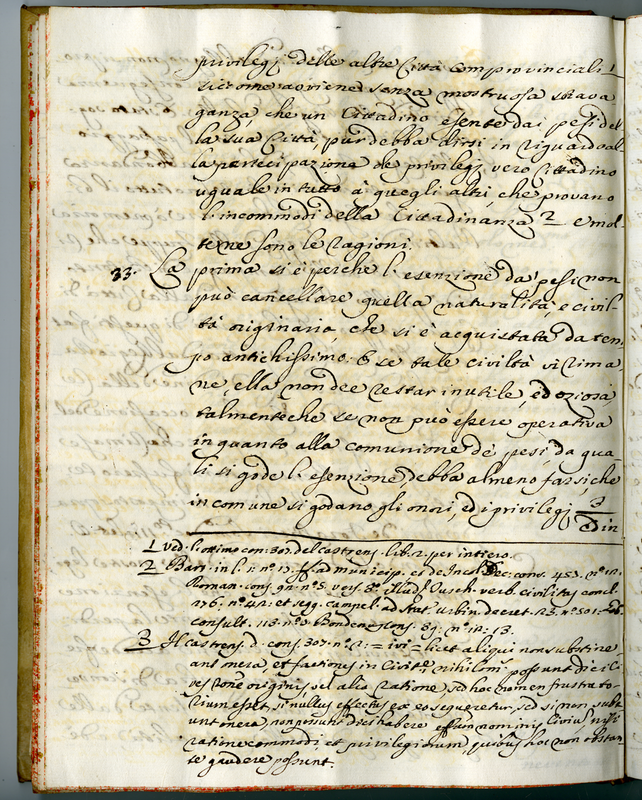 privilegj delle altre Città comprovinciali 1
ne avviene senza mostruosa strava
ganza, che un Cittadino esente dai pesi del
la sua Città, pur debba dirsi in riguardo al
la partecipazione de privilegj vero Cittadino
uguale in tutto a quegli altri che provano
l'incommodi della Cittadinanza 2 e mol
te ne sono le ragioni.
33. La prima si è perche l'esenzione da' pesi non
può cancellare quella naturalità, e civil
tà originaria, che si è acquistata da tem
po antichissimo. E se tale civiltà vi rima
ne, ella non dee restar inutile, ed oziosa,
talmenteche se non può essere operativa
in quanto alla comunione de' pesi, da qua
li si gode l'esenzione debba almeno farsi, che
in comune si godano gli onori, ed i privilegj 3
ed in
1 Ved. l'ottimo con: 307. del castrens. lib. 2. per intiero.
2 Bart. in l. 1. nº 17. ff. ad municip. et de Incol. Dec. cons. 453. nº 12.
Roman. cons. 9. nº 5. vers. 3º Tusch. verb. civilitas concl.
276. nº 42. et seqq. campel. ad Stat. Urbin. decret. 23. nº 501.
consult. 113. nº 2. Bonden. cons. 39. nº 12. 13.
3 Il castrens. d. cons. 307. nº 2. = ivi = licet aliqui non substine
ant onera, et factiones in Civitte, nihilomi. possunt dici ci
ves rone originis, vel alia ratione, sed hoc nomen frustrato
rium esset, si nullus effectus ex eo sequeretur, sed si non subst
unt onera, non possunt dici habere effum nominis Civium, nisi
ratione commodi, et privilegiorum, quibus hoc non obstan
te gaudere possunt.